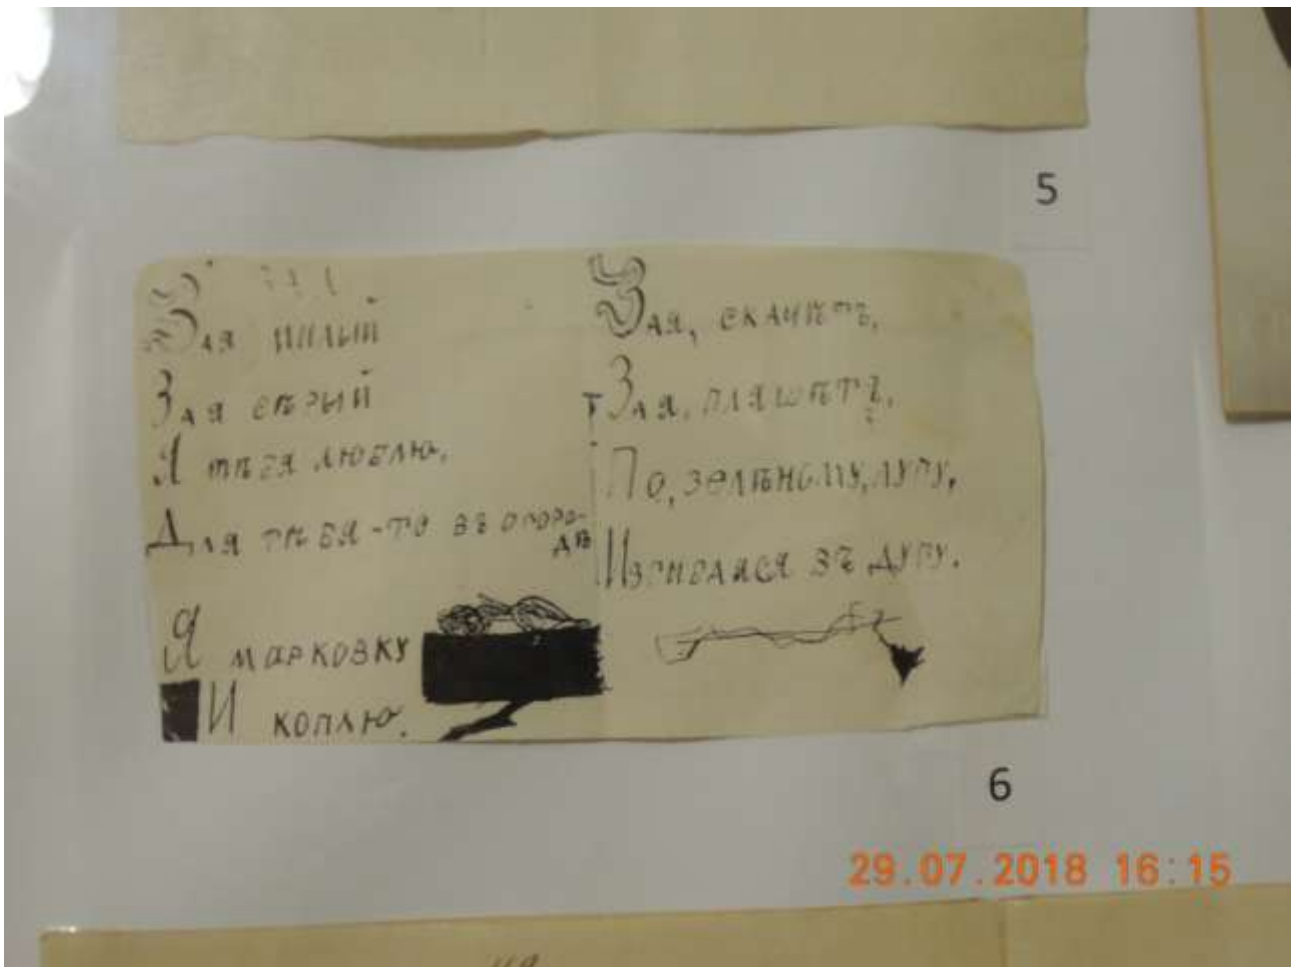 5
Зая милый
Зая сѣрый
Я тѣбя люблю.
Для тѣбя-то въ огоро-
дѣ
Я марковку
И коплю.
Зая, скачѣтъ,
Зая, пляшѣтъ,
По, зелѣному, лугу,
Изгибаяся въ дугу.
6
29.07.2018 16:15